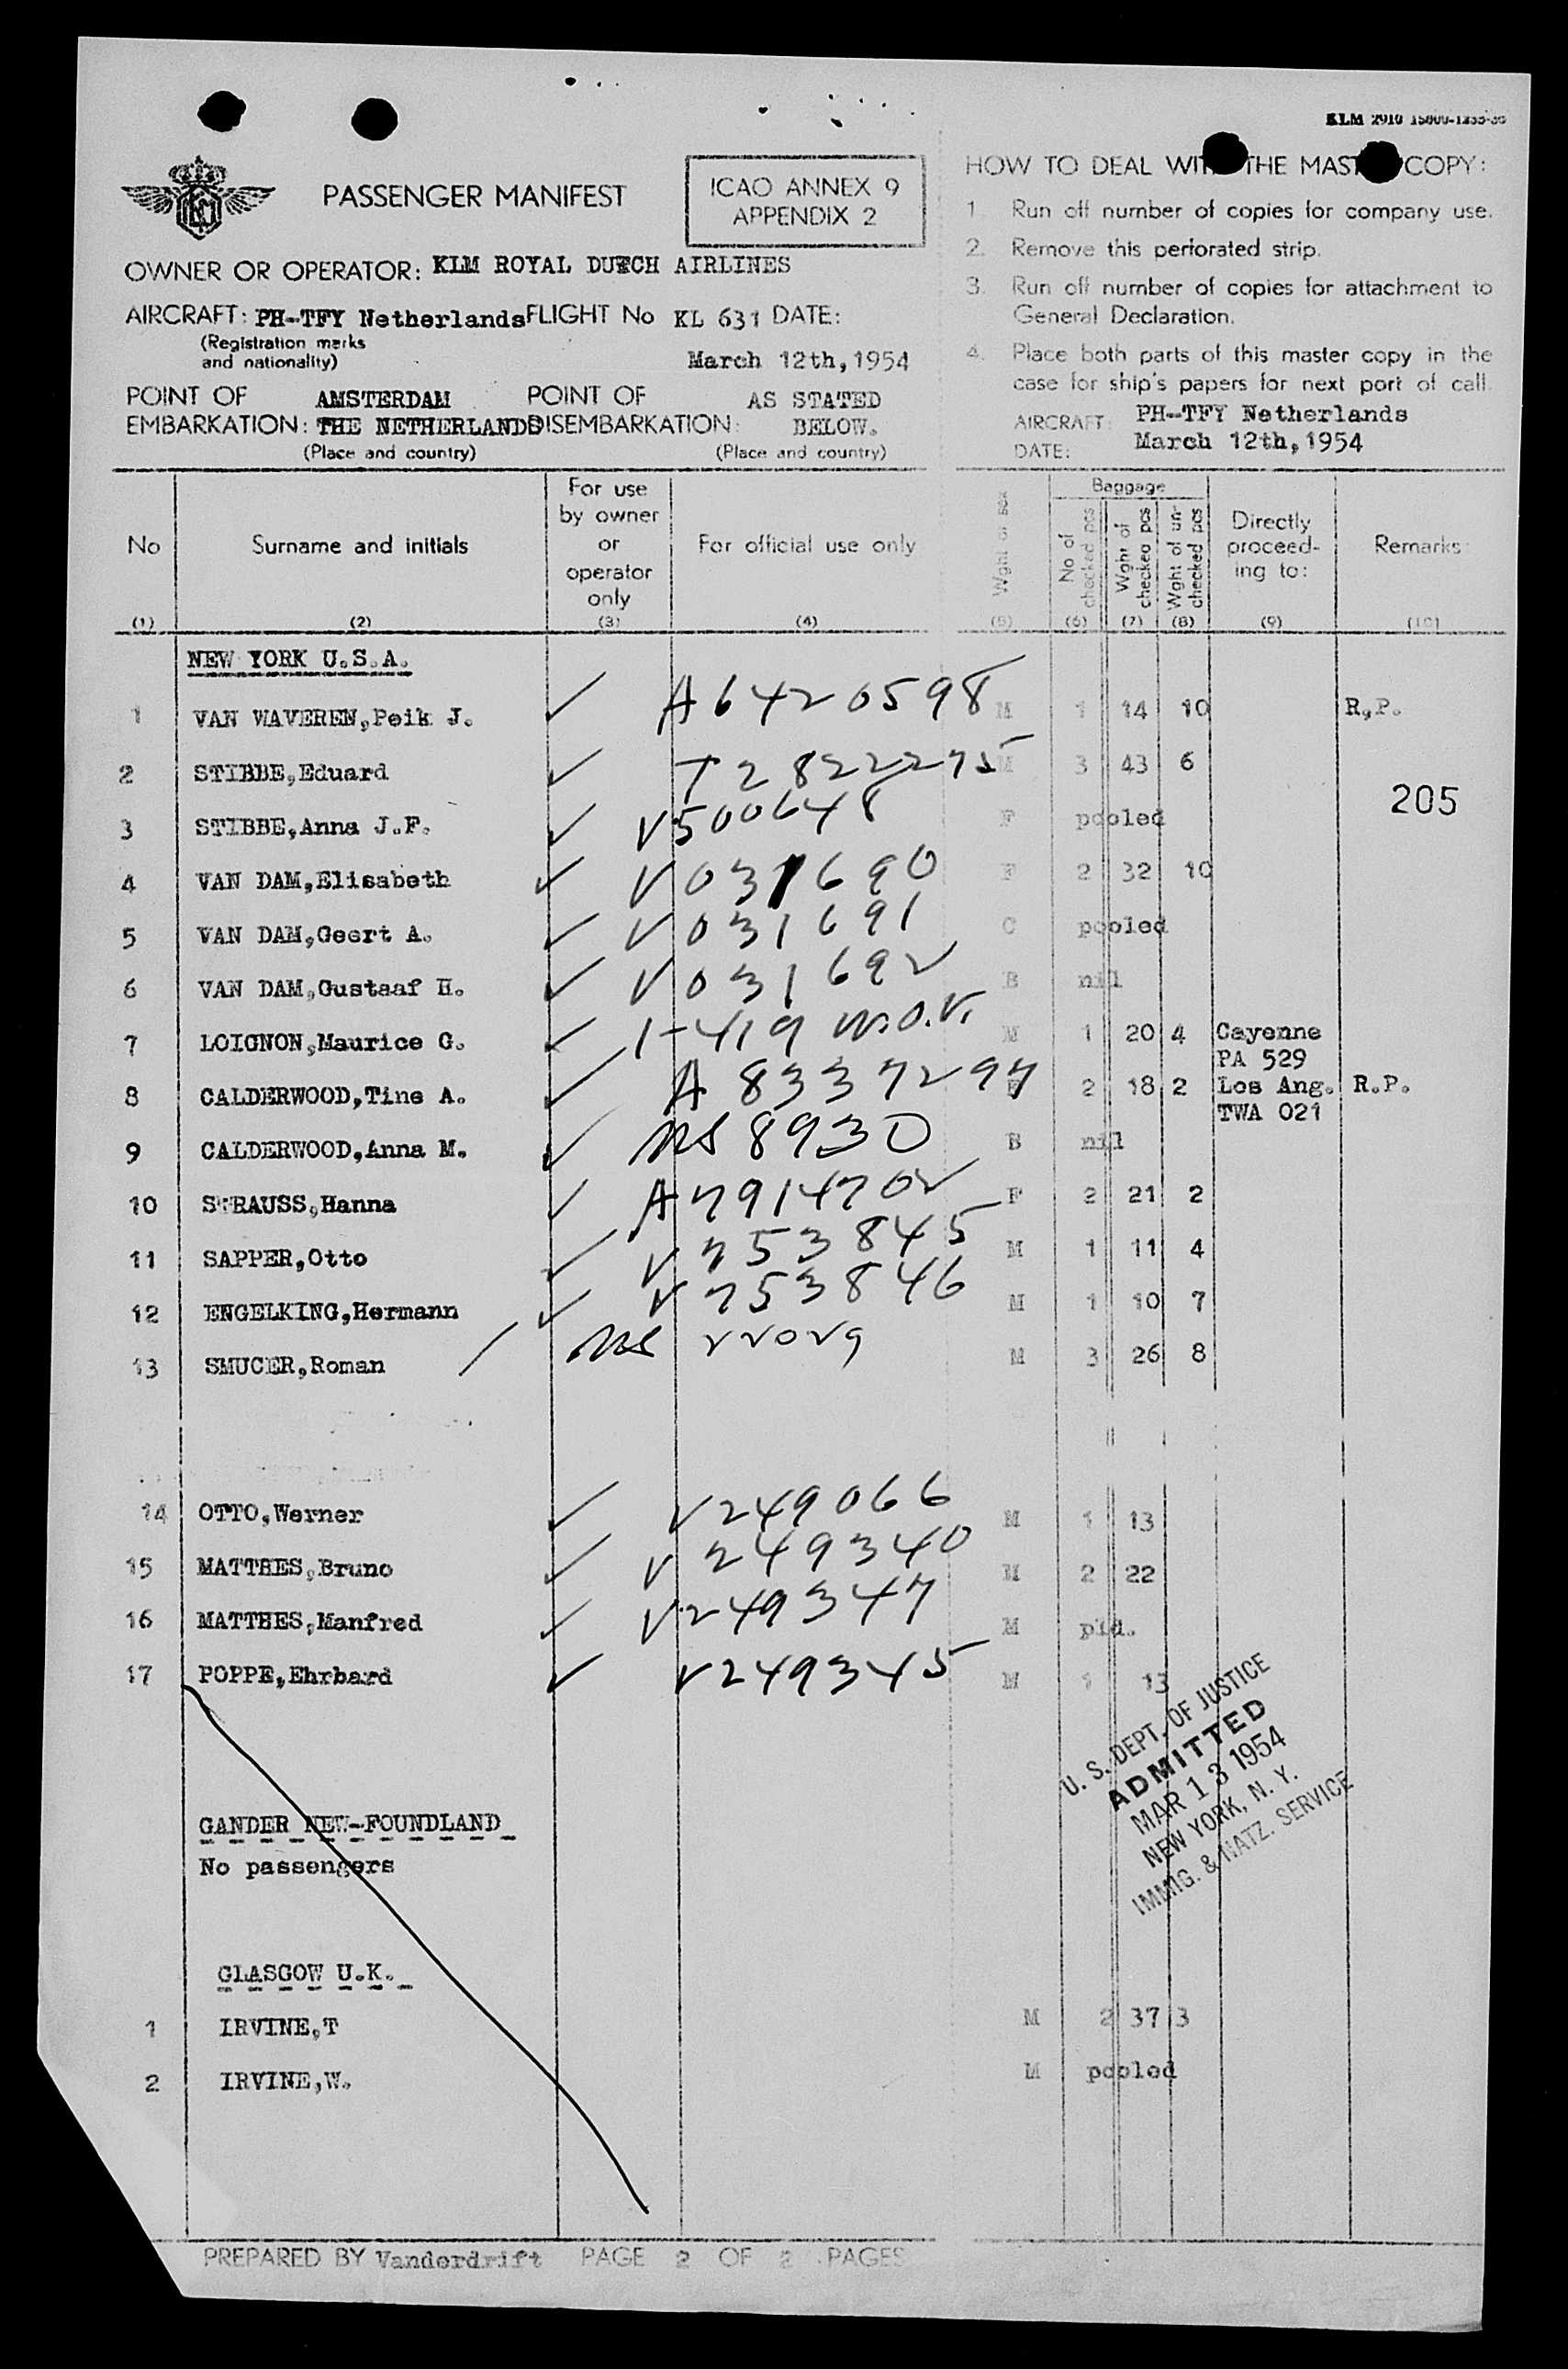 KLM 2910
PASSENGER MANIFEST
ICAO ANNEX 9
APPENDIX 2
OWNER OR OPERATOR: KLM ROYAL DUTCH AIRLINES
AIRCRAFT: PH-TFY Netherlands FLIGHT No KL 631 DATE:
(Registration marks
and nationality)
March 12th, 1954
POINT OF AMSTERDAM POINT OF AS STATED
EMBARKATION: THE NETHERLANDS DISEMBARKATION: BELOW.
(Place and country) (Place and country)
HOW TO DEAL WITH THE MASTER COPY:
1. Run off number of copies for company use.
2. Remove this perforated strip.
3. Run off number of copies for attachment to
General Declaration.
4. Place both parts of this master copy in the
case for ship's papers for next port of call.
AIRCRAFT: PH-TFY Netherlands
DATE: March 12th, 1954
No Surname and initials For use by owner or operator only For official use only Wght of sex Baggage No of checked pcs Wght of checked pcs Wght of un-checked pcs Directly proceed-ing to: Remarks:
(1) (2) (3) (4) (5) (6) (7) (8) (9) (10)
NEW YORK U.S.A.
1 VAN WAVEREN, Peik J. ✓ A6420598 M 1 14 10 R.P.
2 STIBBE, Eduard ✓ T2822275 M 3 43 6
205
3 STIBBE, Anna J.F. ✓ V500648 F pooled
4 VAN DAM, Elisabeth ✓ V031690 F 2 32 10
5 VAN DAM, Geert A. ✓ V031691 C pooled
6 VAN DAM, Gustaaf H. ✓ V031692 B nil
7 LOIGNON, Maurice G. ✓ 1-419 W.O.V. M 1 20 4 Cayenne
PA 529
8 CALDERWOOD, Tine A. ✓ A8337297 F 2 18 2 Los Ang. R.P.
TWA 021
9 CALDERWOOD, Anna M. ✓ NS 8930 B nil
10 STRAUSS, Hanna ✓ A7914702 F 2 21 2
11 SAPPER, Otto ✓ V753845 M 1 11 4
12 ENGELKING, Hermann ✓ V753846 M 1 10 7
13 SMUCER, Roman / NS 22029 M 3 26 8
14 OTTO, Werner ✓ V249066 M 1 13
15 MATTHES, Bruno ✓ V249340 M 2 22
16 MATTHES, Manfred ✓ V249347 M pld.
17 POPPE, Ehrhard ✓ V249345 M 1 13
U. S. DEPT. OF JUSTICE
ADMITTED
MAR 13 1954
NEW YORK, N. Y.
IMMIG. & NATZ. SERVICE
GANDER NEW-FOUNDLAND
No passengers
GLASGOW U.K.
1 IRVINE, T M 2 37 3
2 IRVINE, W. M pooled
PREPARED BY Vanderdrift PAGE 2 OF 2 PAGES